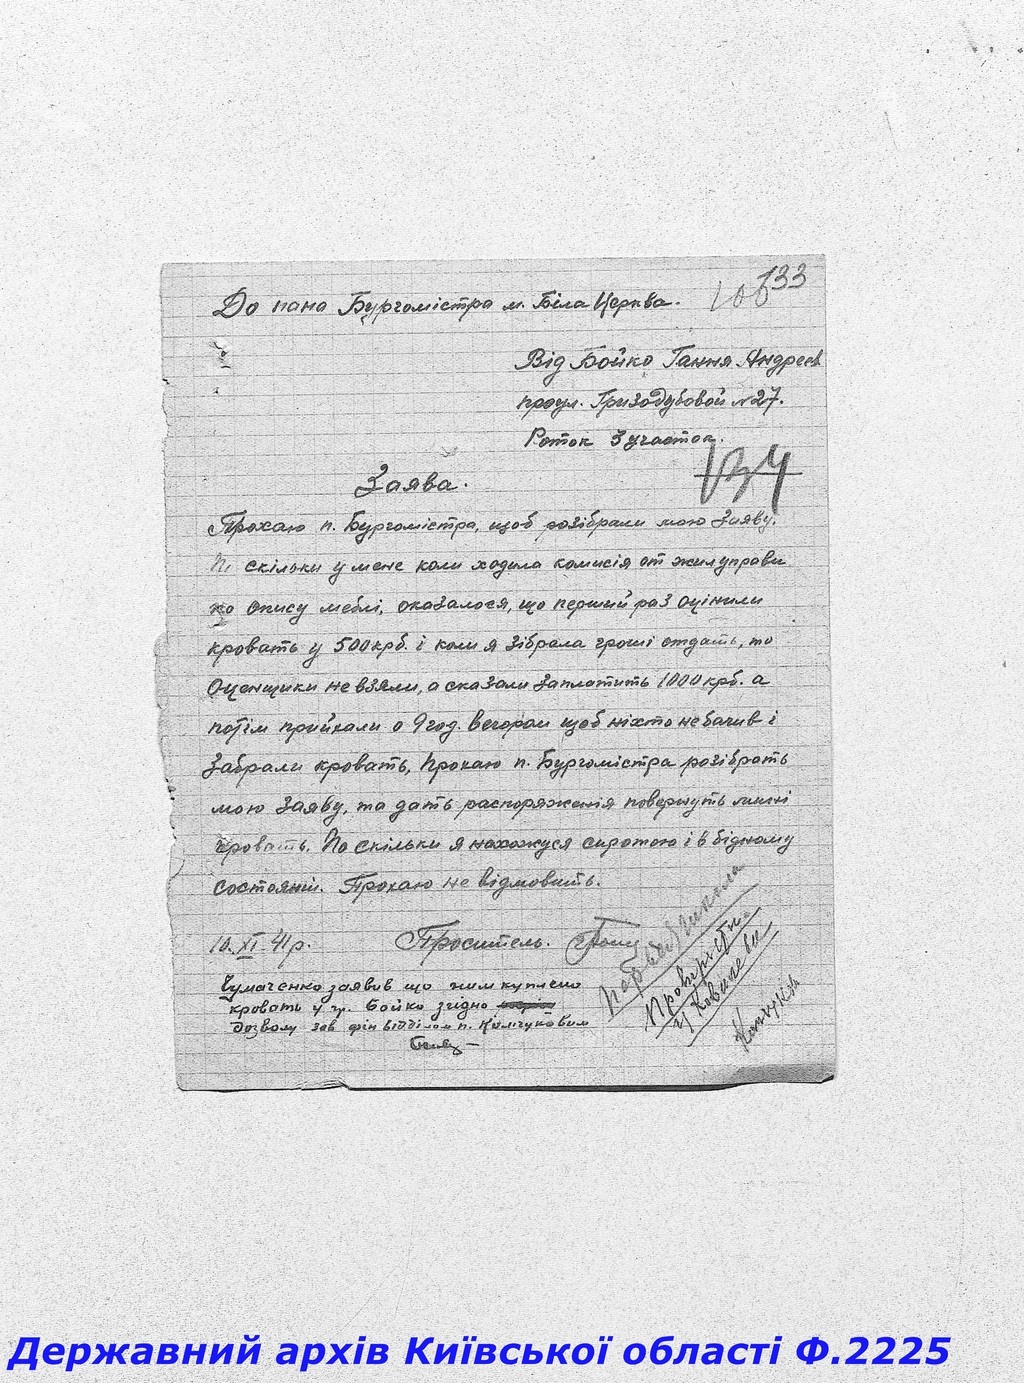 133
106
До пана Бургомістра м. Біла Церква.
Від Бойко Гання Андреєв
проул. Гризодубовой №27.
Роток 3 участок.
134
Заява.
Прохаю п. Бургомістра, щоб розібрали мою Заяву.
По скільки у мене коли ходила комисія от жилуправи
по опису меблі, оказалося, що перший раз оцінили
кровать у 500 крб. і коли я зібрала гроші отдать, то
Оценщики не взяли, а сказали заплатить 1000 крб. а
потім прийхали о 9 год. вечором щоб ніхто не бачив і
забрали кровать, Прохаю п. Бургомістра розібрать
мою Заяву, та дать распоряження повернуть мині
кровать. По скільки я нахожуся сиротою і в бідному
состояній. Прохаю не відмовить.
10. XI 41 р. Проситель.
Чумаченко заявив що ним куплено
кровать у гр. Бойко згідно
дозволу зав фін відділом п. Компуковим
Провірить